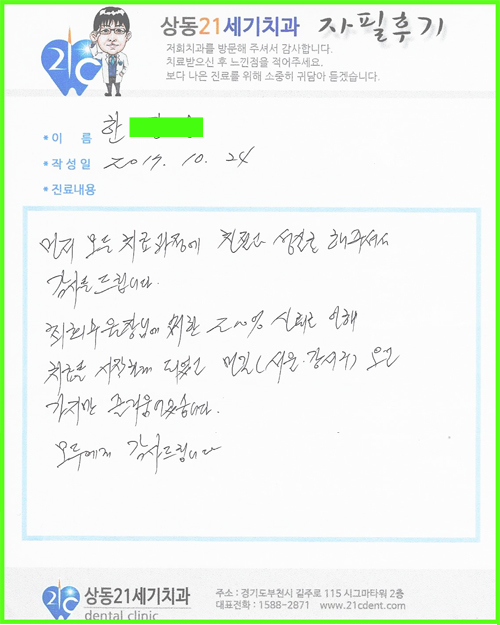 상동21세기치과 자필후기
저희치과를 방문해 주셔서 감사합니다.
치료받으신 후 느낀점을 적어주세요.
보다 나은 진료를 위해 소중히 귀담아 듣겠습니다.
21C
* 이 름 한
* 작성일 2017. 10. 24
* 진료내용
먼저 모든 치료과정에 친절과 성실로 해주셔서
감사를 드립니다.
최희수원장님에 위한 200% 신뢰로 인해
치료를 시작하게 되었고 먼길(서울.강서구) 오고
가지만 즐거웠습니다.
모두에게 감사드립니다
21C 상동21세기치과
dental clinic
주소 : 경기도부천시 길주로 115 시그마타워 2층
대표전화 : 1588-2871 www.21cdent.com